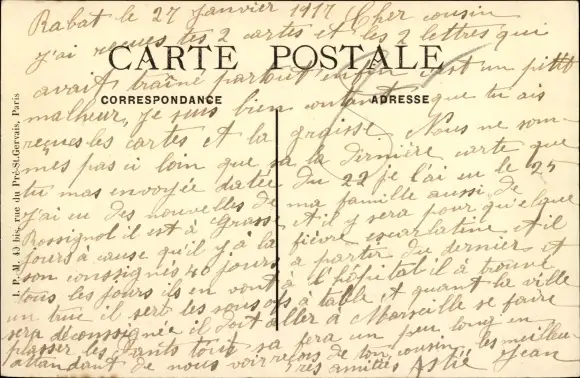 Rabat le 27 Janvier 1917 Cher cousin
j'ai reçues tes 2 cartes et les 2 lettres qui
CARTE POSTALE
avait traîné partout enfin c'est un petit
CORRESPONDANCE
ADRESSE
malheur, je suis bien content que tu ais
reçues les cartes et la graisse. Nous ne som-
mes pas si loin que sa la dernière carte que
tu mas envoyée datée du 22 je l'ai eu le 25
j'ai eu des nouvelles de ma famille aussi, de
Rossignol il est à Grasse et il y sera pour quelque
jours à cause qu'il y à la fièvre escarlatine et il
son consignés 40 jours a partir du dernier et
tous les jours ils en vont à l'hôpital il à trouvé
un truc il sert les sous offs à table et quant la ville
sera déconsignée il doit aller à Marseille se faire
passer les dents tout sa fera un peu long en
attendant de nous voir reçois de ton cousin les meilleu-
res amitiés Astié Jean
J. P. M. 40 bis, rue du Pré-St-Gervais, Paris